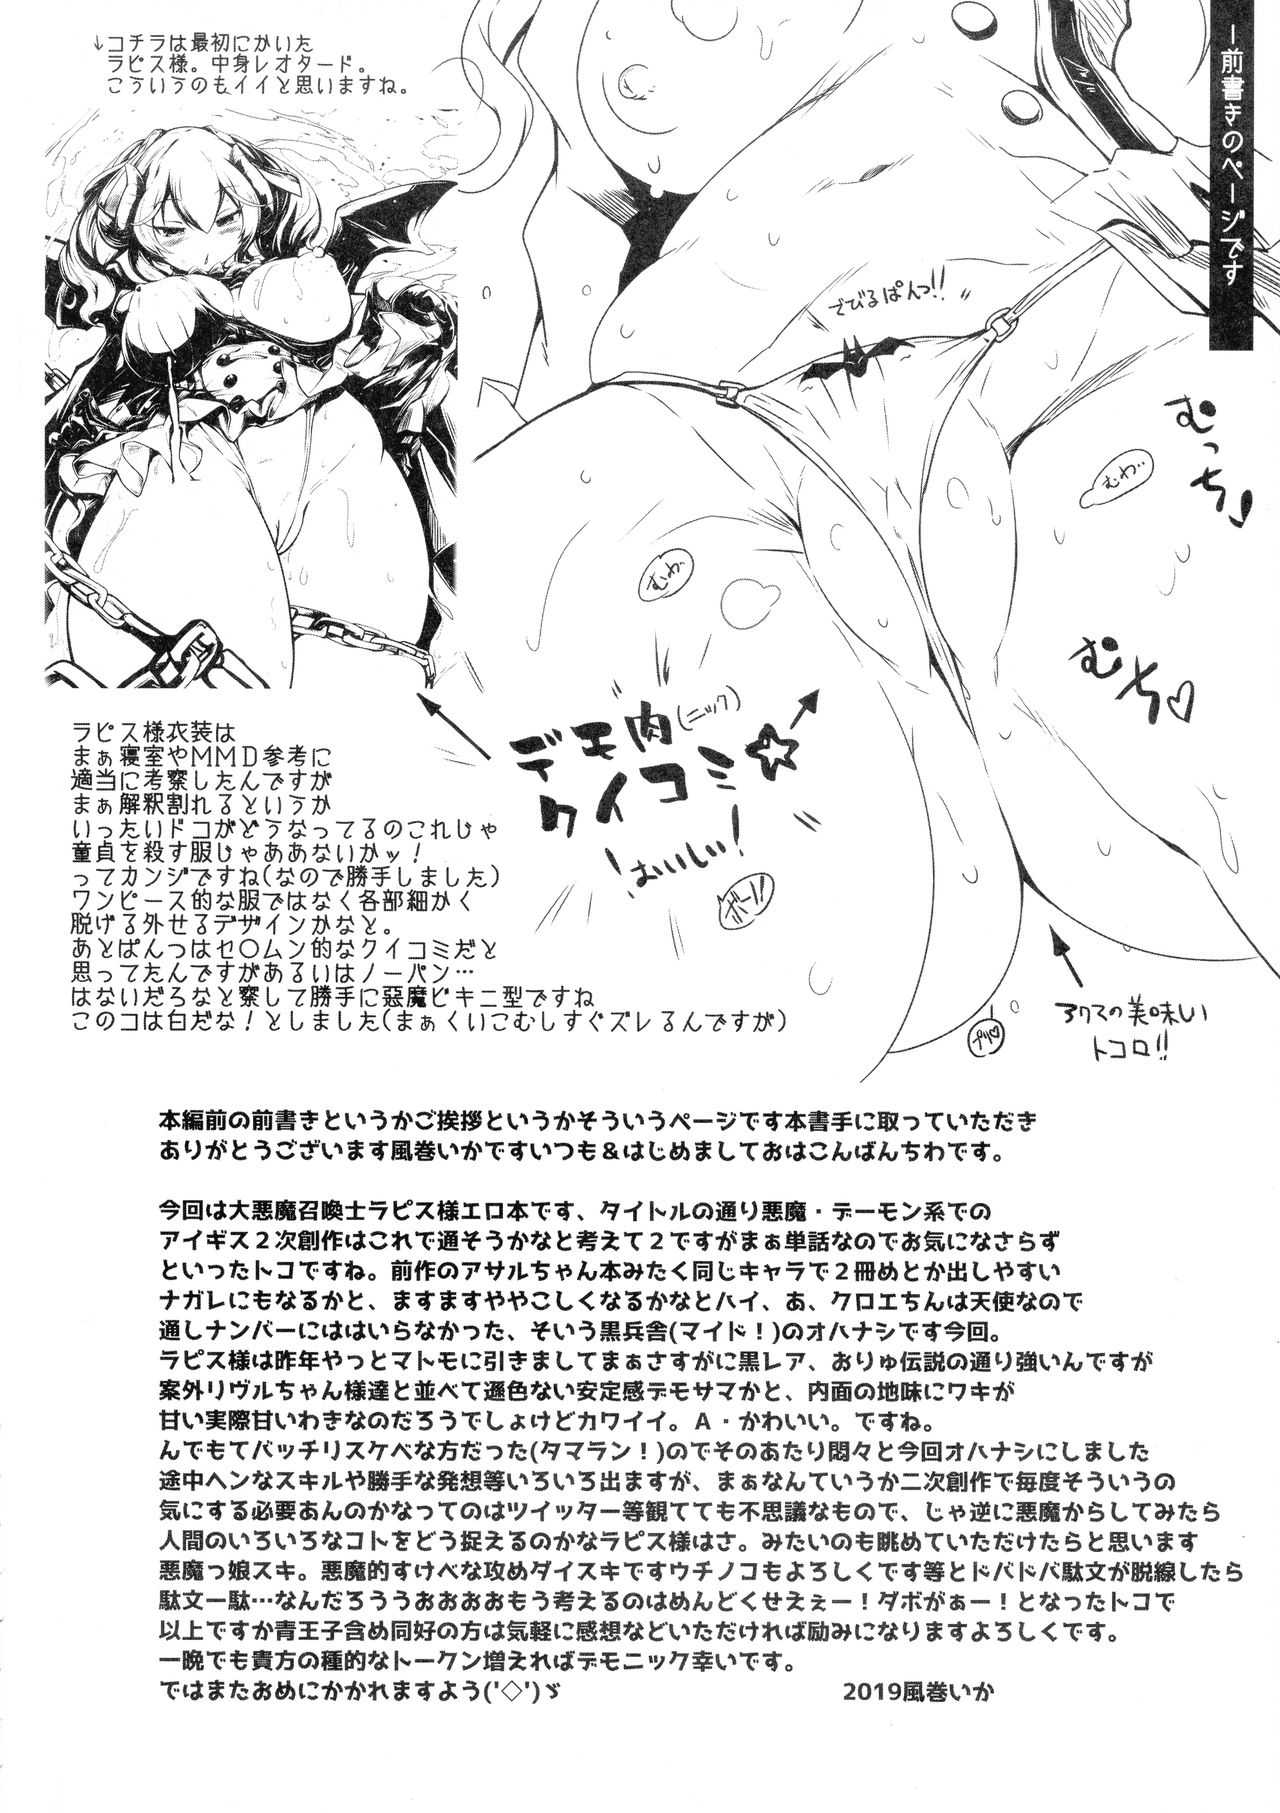 －前書きのページです
↓コチラは最初にかいた
ラピス様。中身レオタード。
こういうのもイイと思いますね。
でびるぱんっ!!
むっち♪
むわ゛
むわ
むちっ♡
デモ肉(ニック)
クイコミ☆
おいしい!
ボーン!!
プリ♡
アクマの美味しい
トコロ!!
ラピス様衣装は
まぁ寝室やＭＭＤ参考に
適当に考察したんですが
まぁ解釈割れるというか
いったいドコがどうなってるのこれじゃ
童貞を殺す服じゃああないかッ！
ってカンジですね(なので勝手しました)
ワンピース的な服ではなく各部細かく
脱げる外せるデザインかなと。
あとぱんつはセ〇ムン的なクイコミだと
思ってたんですがあるいはノーパン…
はないだろなと察して勝手に惡魔ビキニ型ですね
このコは白だな！としました(まぁくいこむしすぐズレるんですが)
本編前の前書きというかご挨拶というかそういうページです本書手に取っていただき
ありがとうございます風巻いかですいつも＆はじめましておはこんばんちわです。
今回は大悪魔召喚士ラピス様エロ本です、タイトルの通り悪魔・デーモン系での
アイギス２次創作はこれで通そうかなと考えて２ですがまぁ単話なのでお気になさらず
といったトコですね。前作のアサルちゃん本みたく同じキャラで２冊めとか出しやすい
ナガレにもなるかと、ますますややこしくなるかなとハイ、あ、クロエちんは天使なので
通しナンバーにははいらなかった、そいう黒兵舎(マイド！)のオハナシです今回。
ラピス様は昨年やっとマトモに引きましてまぁさすがに黒レア、おりゅ伝説の通り強いんですが
案外リヴルちゃん様達と並べて遜色ない安定感デモサマかと、内面の地味にワキが
甘い実際甘いわきなのだろうでしょけどカワイイ。Ａ・かわいい。ですね。
んでもてバッチリスケベな方だった(タマラン！)のでそのあたり悶々と今回オハナシにしました
途中ヘンなスキルや勝手な発想等いろいろ出ますが、まぁなんていうか二次創作で毎度そういうの
気にする必要あんのかなってのはツイッター等観てても不思議なもので、じゃ逆に悪魔からしてみたら
人間のいろいろなコトをどう捉えるのかなラピス様はさ。みたいのも眺めていただけたらと思います
悪魔っ娘スキ。悪魔的すけべな攻めダイスキですウチノコもよろしくです等とドバドバ駄文が脱線したら
駄文一駄…なんだろううおおおおもう考えるのはめんどくせえぇー！ダボがぁー！となったトコで
以上ですか青王子含め同好の方は気軽に感想などいただければ励みになりますよろしくです。
一晩でも貴方の種的なトークン増えればデモニック幸いです。
ではまたおめにかかれますよう('◇')ゞ
2019風巻いか